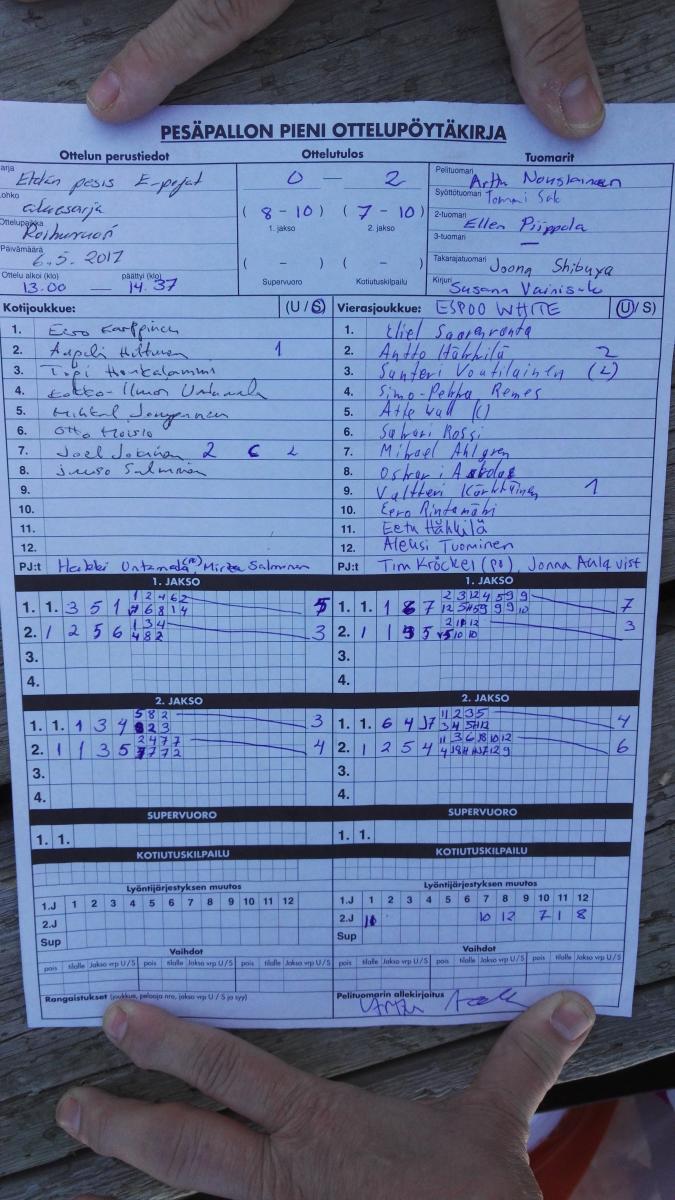 PESÄPALLON PIENI OTTELUPÖYTÄKIRJA
Ottelun perustiedot
Ottelutulos
Tuomarit
Etelän pesis E-pojat
aluesarja
Ottelupaikka
Roihuvuori
Päivämäärä
6.5. 2017
Ottelu alkoi (klo) päättyi (klo)
13.00 — 14.37
0 — 2
( 8 - 10 ) ( 7 - 10 )
1. jakso 2. jakso
( - ) ( - )
Supervuoro Kotiutuskilpailu
Pelituomari
Arttu Nousiainen
Syöttötuomari Tommi
2-tuomari
Ellen Piippola
3-tuomari —
Takarajatuomari
Joona Shibuya
Kirjuri
Susann
Kotijoukkue: (U / S)
1. Eero Karppinen
2. Aapeli Huttunen 1
3. Topi Honkalammi
4. Ukko-Ilmari Untamala
5. Mihkal
6. Otto Moisio
7. Joel Jokinen 2
8. Juuso Salminen
9.
10.
11.
12.
PJ:t Heikki Untamala Mirka Salminen
Vierasjoukkue: ESPOO WHITE (U / S)
1. Eliel Saarenronta
2. Antto Hähkilä 2
3. Santeri Voutilainen (L)
4. Simo-Pekka Remes
5. Atte
6. Sakari Rossi
7. Mikael Ahlgren
8. Oskari
9. Valtteri Kärkkäinen 1
10. Eero Rintamäki
11. Eetu Hähkilä
12. Aleksi Tuominen
PJ:t Tim Kröckel (PJ), Jonna Ahlqvist
1. JAKSO
1. 1. 3 5 1
1 2 4 6 2
7 6 8 1 4
5
2. 1 2 5 6
1 3 4
4 8 2
3
3.
4.
1. JAKSO
1. 1. 1 8 7
7
2. 1 1
3
3.
4.
2. JAKSO
1. 1. 1 3 4
5 8 2
3
2. 1 1 3 5
2 4 7 7
4
3.
4.
2. JAKSO
1. 1. 6 4
11 2 3 5
4
2. 1 2 5 4
11 3 6 8 10 12
6
3.
4.
SUPERVUORO
1. 1.
SUPERVUORO
1. 1.
KOTIUTUSKILPAILU
KOTIUTUSKILPAILU
Lyöntijärjestyksen muutos
1.J 1 2 3 4 5 6 7 8 9 10 11 12
2.J
Sup
Lyöntijärjestyksen muutos
1.J 1 2 3 4 5 6 7 8 9 10 11 12
2.J 10 12 7 1 8
Sup
Vaihdot
pois tilalle Jakso vrp U / S pois tilalle Jakso vrp U / S pois tilalle Jakso vrp U / S
Vaihdot
pois tilalle Jakso vrp U / S pois tilalle Jakso vrp U / S pois tilalle Jakso vrp U / S
Rangaistukset (joukkue, pelaaja nro, jakso vrp U / S ja syy)
Pelituomarin allekirjoitus